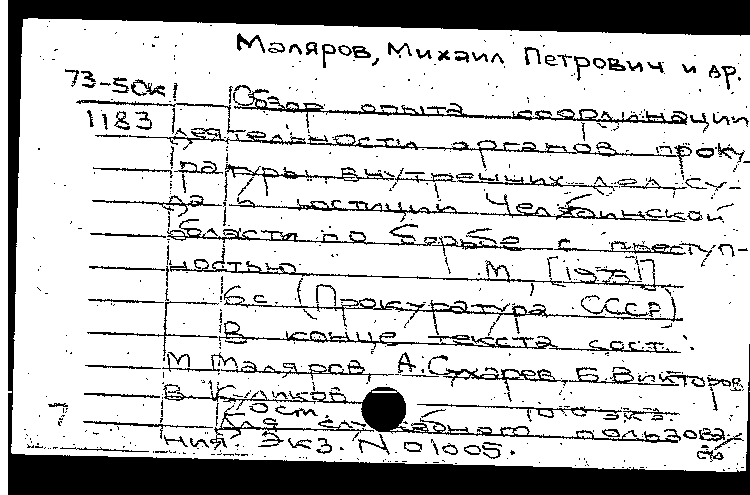 Маляров, Михаил Петрович и др.
73-50к
1183
Обзор опыта координации
деятельности органов проку-
ратуры, внутренних дел, су-
да и юстиции Челябинской
области по борьбе с преступ-
ностью. М., [1973]
6 с. (Прокуратура СССР)
В конце текста сост.:
М. Маляров, А. Сухарев, Б. Викторов
В. Куликов
100 экз.
Для служебного пользова-
ния. Экз. N 01005.